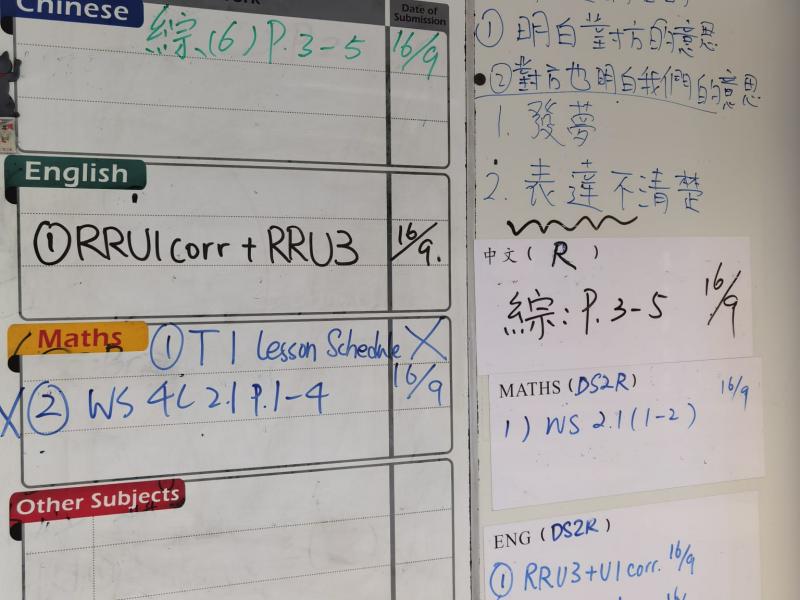 Chinese
Date of
Submission
綜(6) P.3-5 16/9
English
① RRU1 corr + RRU3 16/9.
Maths
① T1 Lesson Schedule X
X ② WS 4C 2.1 P.1-4 16/9
Other Subjects
① 明白對方的意思
② 對方也明白我們的意思
1. 發夢
2. 表達不清楚
中文 ( R )
綜: P. 3-5 16/9
MATHS (DS2R) 16/9
1) WS 2.1 (1-2)
ENG (DS2R)
① RRU3+U1 corr. 16/9